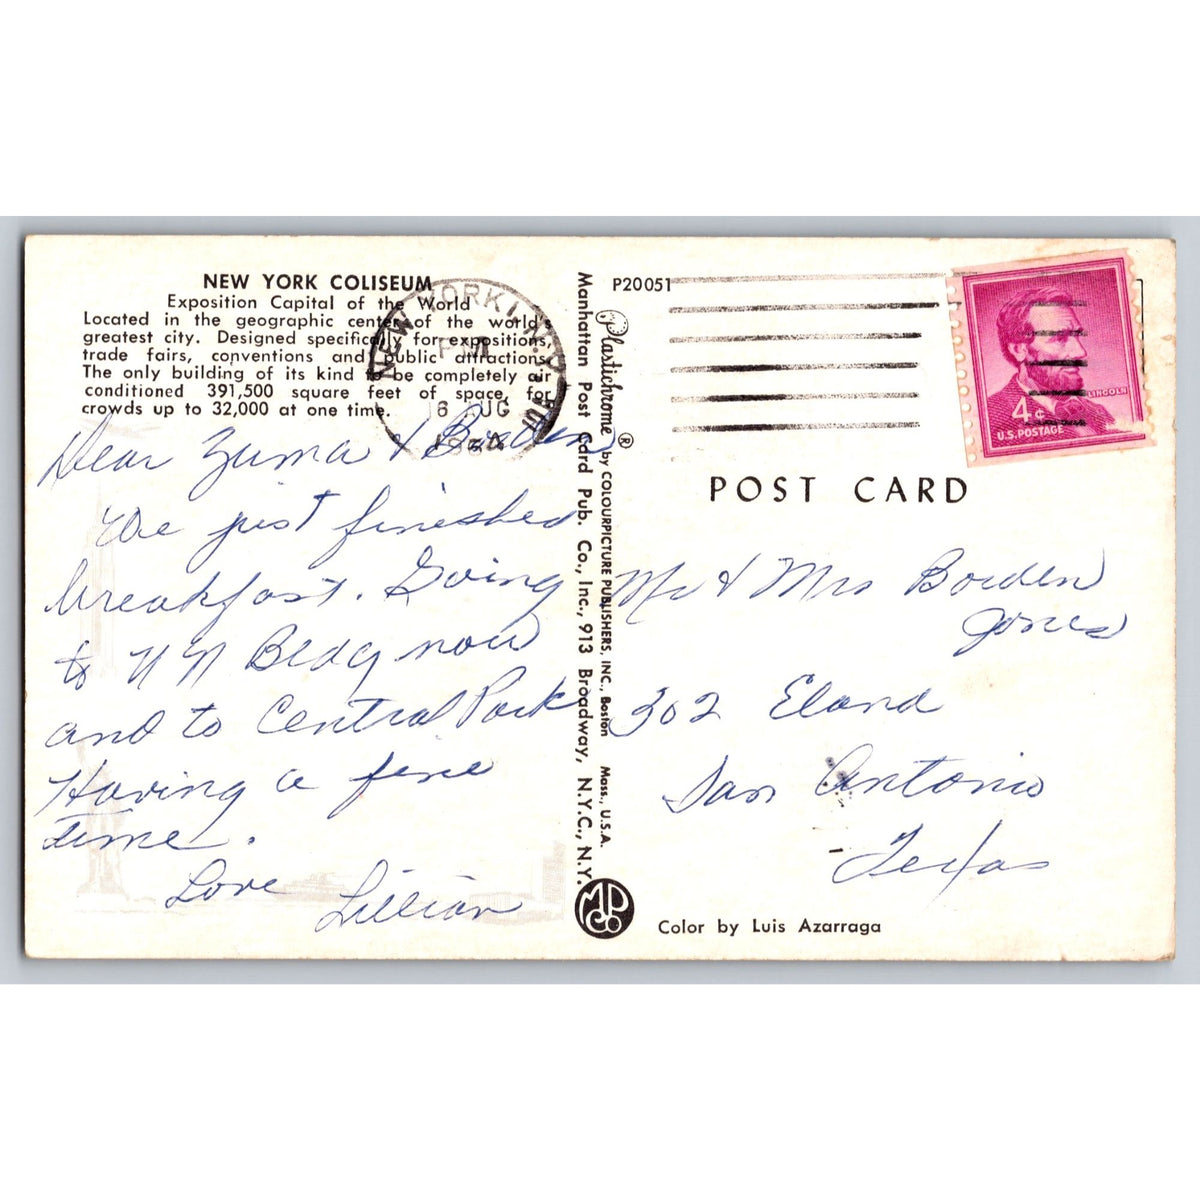 NEW YORK COLISEUM
Exposition Capital of the World
Located in the geographic center of the world's
greatest city. Designed specifically for expositions,
trade fairs, conventions and public attractions.
The only building of its kind to be completely air
conditioned 391,500 square feet of space, for
crowds up to 32,000 at one time.
Dear Zuma & Borden
We just finished
breakfast. Going
to U N Bldg now
and to Central Park
Having a fine
time.
Love
Lillian
Manhattan Post Card Pub. Co., Inc., 913 Broadway, N.Y.C., N.Y.
Plastichrome ® by COLOURPICTURE PUBLISHERS, INC., Boston Mass., U.S.A.
MPCo
P20051
NEW YORK, N.Y.
PM
6 AUG
LINCOLN
4¢
U.S. POSTAGE
POST CARD
Mr & Mrs Borden
Jones
302 Eland
San Antonio
Texas
Color by Luis Azarraga